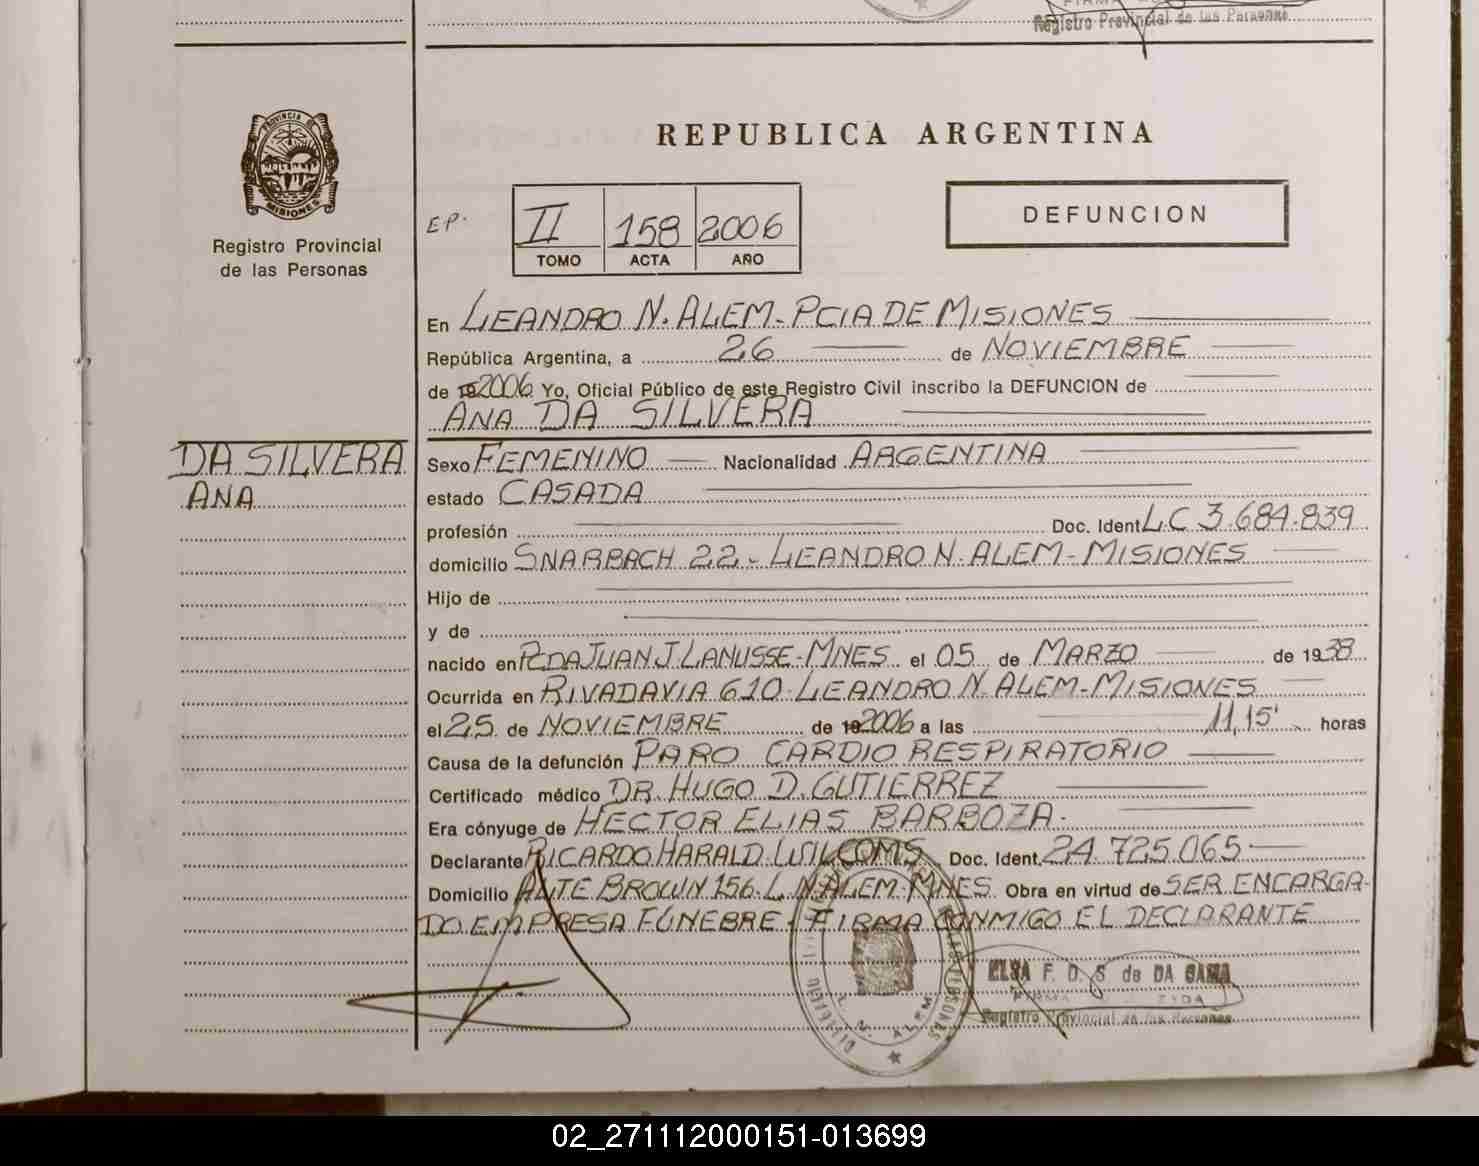 Registro Provincial de las Personas
PROVINCIA DE
MISIONES
Registro Provincial
de las Personas
REPUBLICA ARGENTINA
EP.
II 158 2006
TOMO ACTA AÑO
DEFUNCION
En LEANDRO N. ALEM - PCIA DE MISIONES
República Argentina, a 26 de NOVIEMBRE
de 192006 Yo, Oficial Público de este Registro Civil inscribo la DEFUNCION de
ANA DA SILVERA
DA SILVERA
ANA
Sexo FEMENINO Nacionalidad ARGENTINA
estado CASADA
profesión Doc. Ident L.C 3.684.839
domicilio SNARBACH 22 - LEANDRO N. ALEM - MISIONES
Hijo de
y de
nacido en PCDA JUAN J LANUSSE - MNES. el 05 de MARZO de 1938
Ocurrida en RIVADAVIA 610 - LEANDRO N. ALEM - MISIONES
el 25 de NOVIEMBRE de 192006 a las 11,15' horas
Causa de la defunción PARO CARDIO RESPIRATORIO
Certificado médico DR. HUGO D. GUTIERREZ
Era cónyuge de HECTOR ELIAS BARBOZA.
Declarante RICARDO HARALD WILCOMS Doc. Ident. 24.725.065
Domicilio ALTE BROWN 156 - L. N. ALEM - MNES. Obra en virtud de SER ENCARGA-
DO EMPRESA FÚNEBRE - FIRMA CONMIGO EL DECLARANTE
L. N. ALEM
ELSA F. D. S de DA GAMA
Registro Provincial de las Personas
02_271112000151-013699